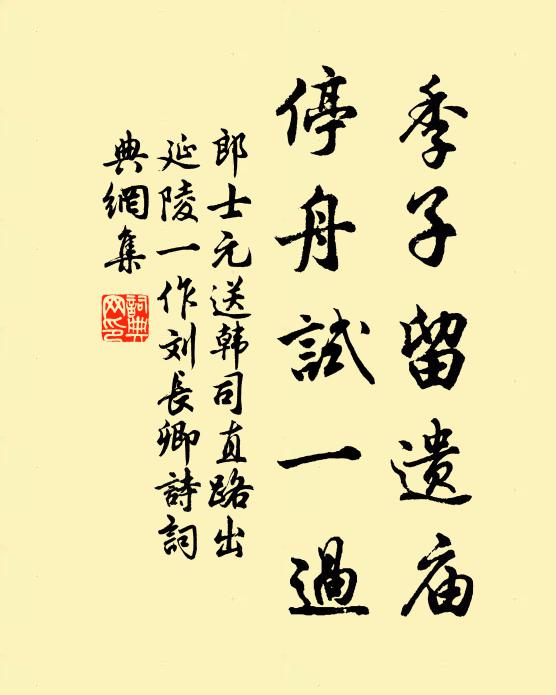 季子留遗庙
停舟試一過
郎士元送韩司直路出
延陵一作刘長卿詩詞
典網集
詞典
网印